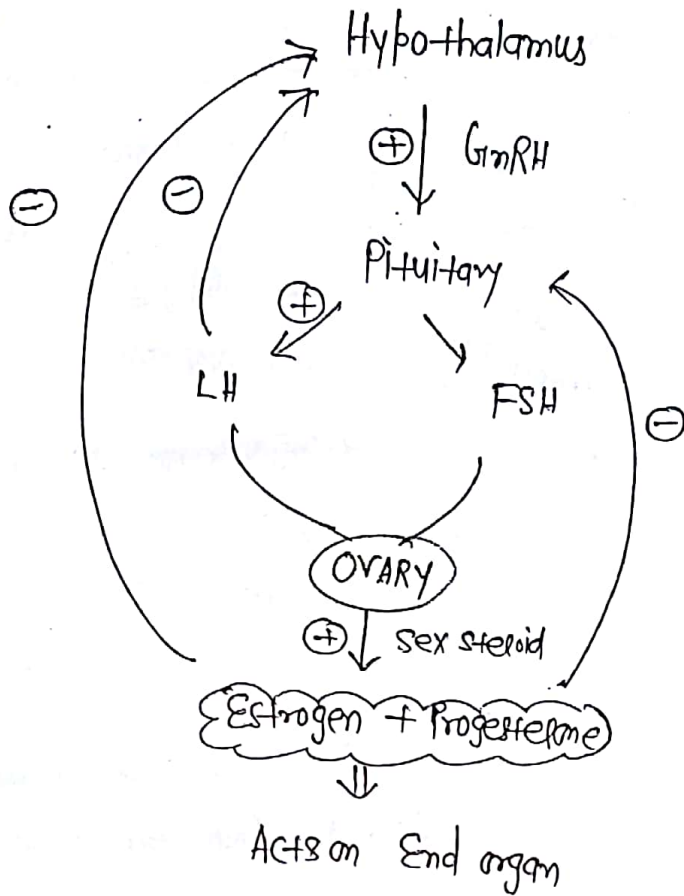 Hypothalamus
⊕ GnRH
⊖ ⊖
Pituitary
⊕
LH FSH
⊖
OVARY
⊕ Sex steroid
Estrogen + Progesterone
Acts on End organ